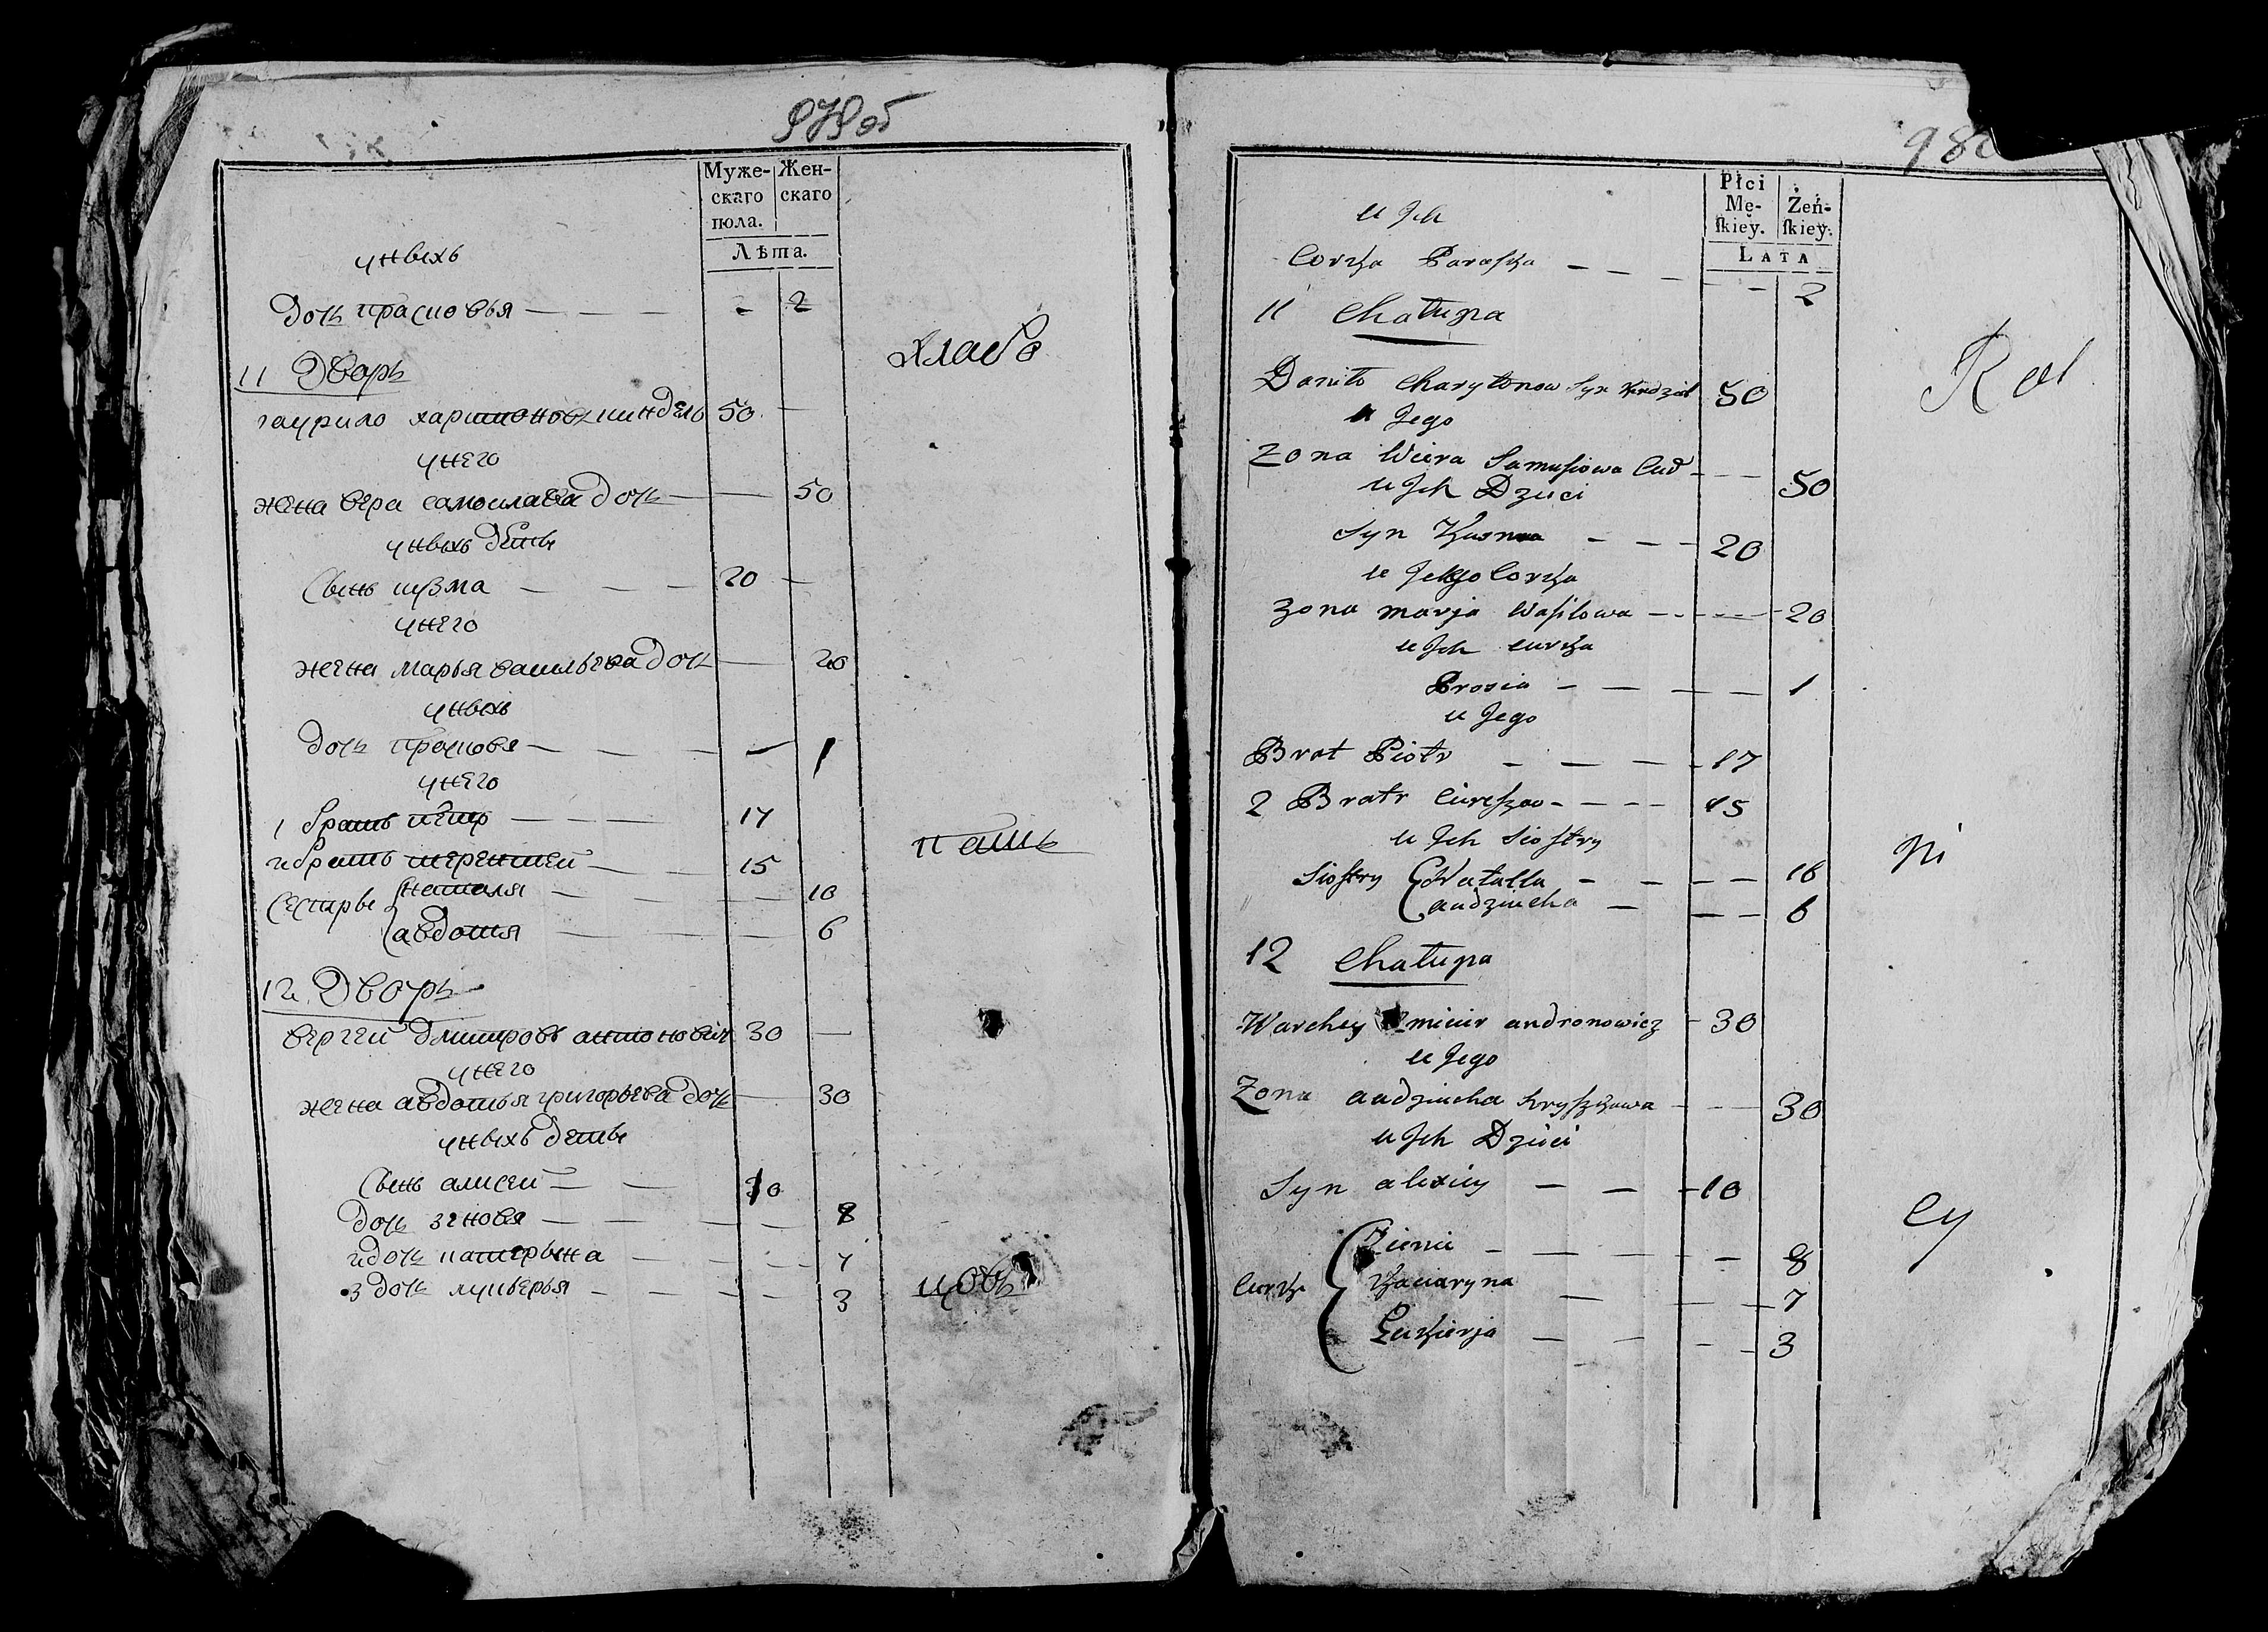 979об
Муже-
скаго
пола.
Жен-
скаго
Лѣта.
у ныхъ
дочь прасковья — — — - 2
11 Дворъ
гаурило харитоновъ киндель 50 —
у него
жена вера самоилава дочь — — 50
у ныхъ дети
сынъ кузма — — — 20 —
у него
жена марья васильева дочь — 20
у ныхъ
дочь просковя — — — — 1
у него
1 братъ петр — — — 17
2 братъ терентей — — 15
сестры наталя — — — 10
авдотя — — — 6
12 Дворъ
сергей дмитровъ антонович 30 —
у него
жена авдотья григорьева дочь — 30
у ныхъ дети
сынъ алисей — — 10
дочь зеновя — — — — 8
2 дочь катерына — — — 7
3 дочь лукерья — — — — 3
980
Płci
Mę-
ſkiey.
Żeń-
ſkiey.
LATA
u Jch
Corka Paraſka — — — — 2
11 Chałupa
Daniło Charytonow Syn 50
u Jego
Zona Wiera Samuſiowa Cud — — 50
u Jch Dzieci
Syn Kuzma — — — 20
u Jego Corka
Zona Marja Waſilowa — — — 20
u Jch curka
Prosia — — — — 1
u Jego
Brat Piotr — — — 17
2 Bratr Cireſzao — — — 15
u Jch Sioſtry
Sioſtry Natalla — — — — 16
audziucha — — — 6
12 Chałupa
Warchey micier andronowicz — 30
u Jego
Zona audziucha Hryſzkowa — — 30
u Jch Dzieci
Syn alexiey — — — 10
Zienia — — — — 8
Curka Kaciaryna — — — 7
Łukierja — — — — 3
пашь
Rol
pi
cy